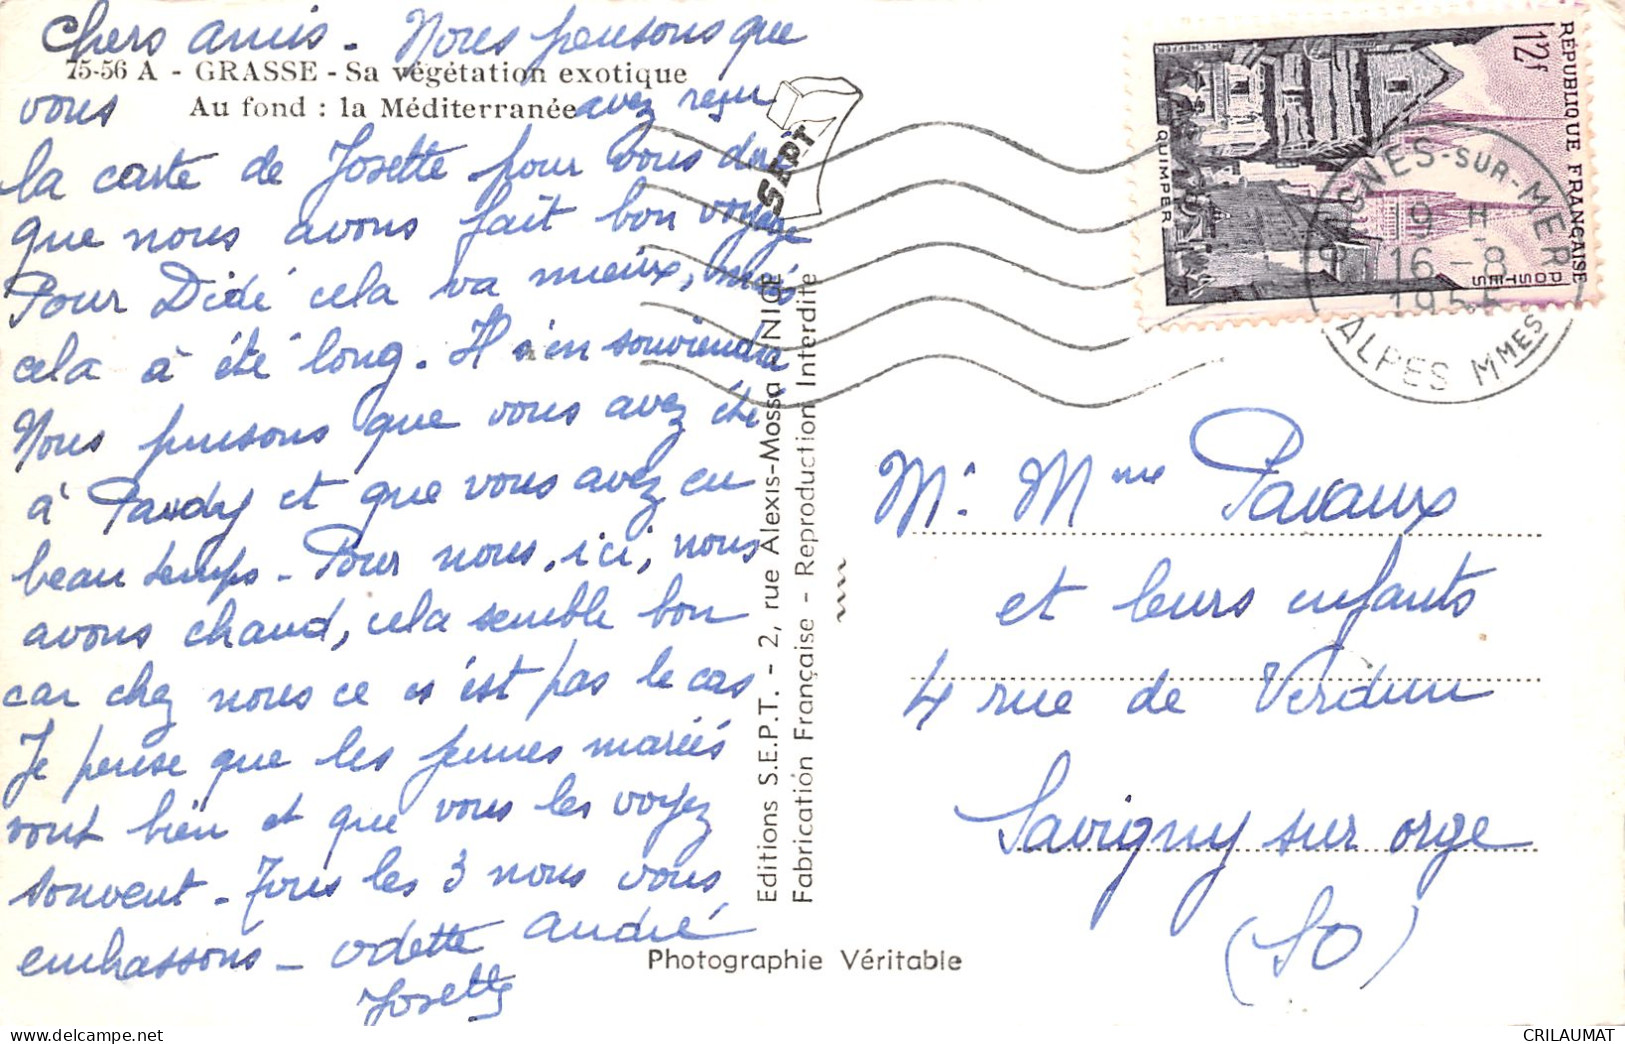 Chers amis - Nous pensons que
75-56 A - GRASSE - Sa végétation exotique
Au fond : la Méditerranée
vous avez reçu
la carte de Josette pour vous dire
que nous avons fait bon voyage
Pour Didé cela va mieux, mais
cela à été long. Il s'en souviendra
Nous pensons que vous avez été
à et que vous avez eu
beau temps - Pour nous, ici, nous
avons chaud, cela semble bon
car chez nous ce n'est pas le cas
Je pense que les jeunes mariés
vont bien et que vous les voyez
souvent - Tous les 3 nous vous
embrassons - Odette André
Josette
SEPT
Editions S.E.P.T. - 2, rue Alexis-Mossa - NICE
Fabrication Française - Reproduction Interdite
Photographie Véritable
RÉPUBLIQUE FRANÇAISE
12f
POSTES
QUIMPER
CAGNES-SUR-MER
9 H
16 - 8
195
ALPES Mmes
Mr Mme Pavaux
et leurs enfants
4 rue de Verdun
Savigny sur orge
(SO)
CRILAUMAT